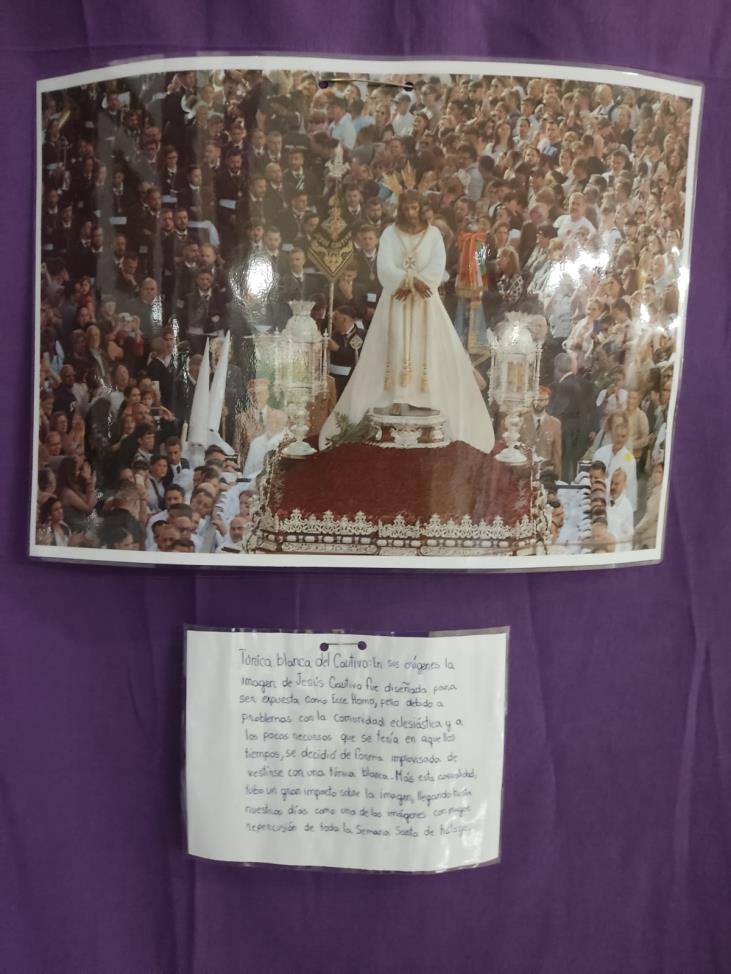 Túnica blanca del Cautivo: En sus orígenes la
imagen de Jesús Cautivo fue diseñada para
ser expuesta como Ecce Homo, pero debido a
problemas con la comunidad eclesiástica y a
los pocos recursos que se tenía en aquellos
tiempos, se decidió de forma improvisada de
vestirse con una túnica blanca. Más esta casualidad,
tubo un gran impacto sobre la imagen, llegando hasta
nuestros días como una de las imágenes con mayor
repercusión de toda la Semana Santa de Málaga.